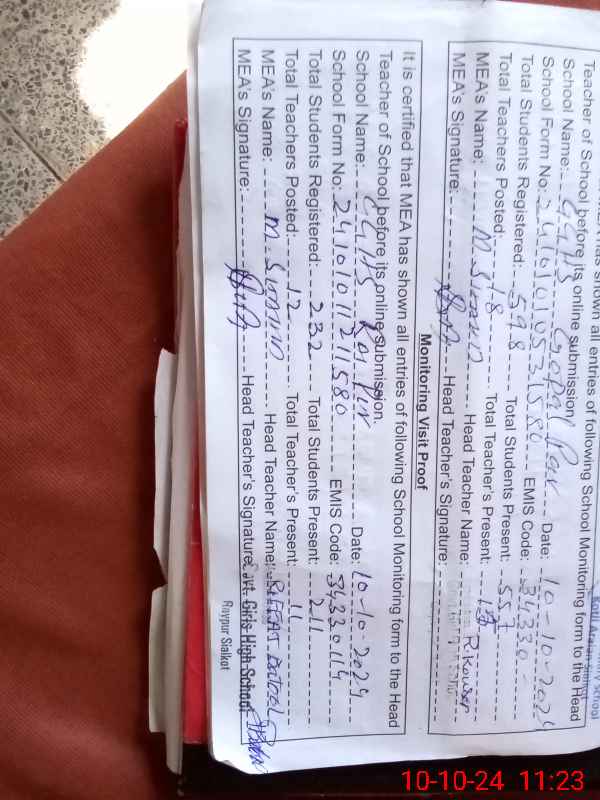 shown all entries of following School Monitoring form to the Head
Teacher of School before its online submission.
School Name: GGHS Gopal Pur Date: 10-10-2024
School Form No: EMIS Code: 34330
Total Students Registered: 598 Total Students Present: 557
Total Teachers Posted: 18 Total Teacher's Present:
MEA's Name: M. Head Teacher Name: R. Kowser
MEA's Signature: Head Teacher's Signature:
Monitoring Visit Proof
It is certified that MEA has shown all entries of following School Monitoring form to the Head
Teacher of School before its online submission.
School Name: GGHS Rai Pur Date: 10-10-2024
School Form No: 24101011211580 EMIS Code: 34330114
Total Students Registered: 232 Total Students Present: 211
Total Teachers Posted: 12 Total Teacher's Present: 11
MEA's Name: M. Head Teacher Name: RIFFAT Batool
MEA's Signature: Head Teacher's Signature:
Govt. Girls High School
Raypur Sialkot
10-10-24 11:23